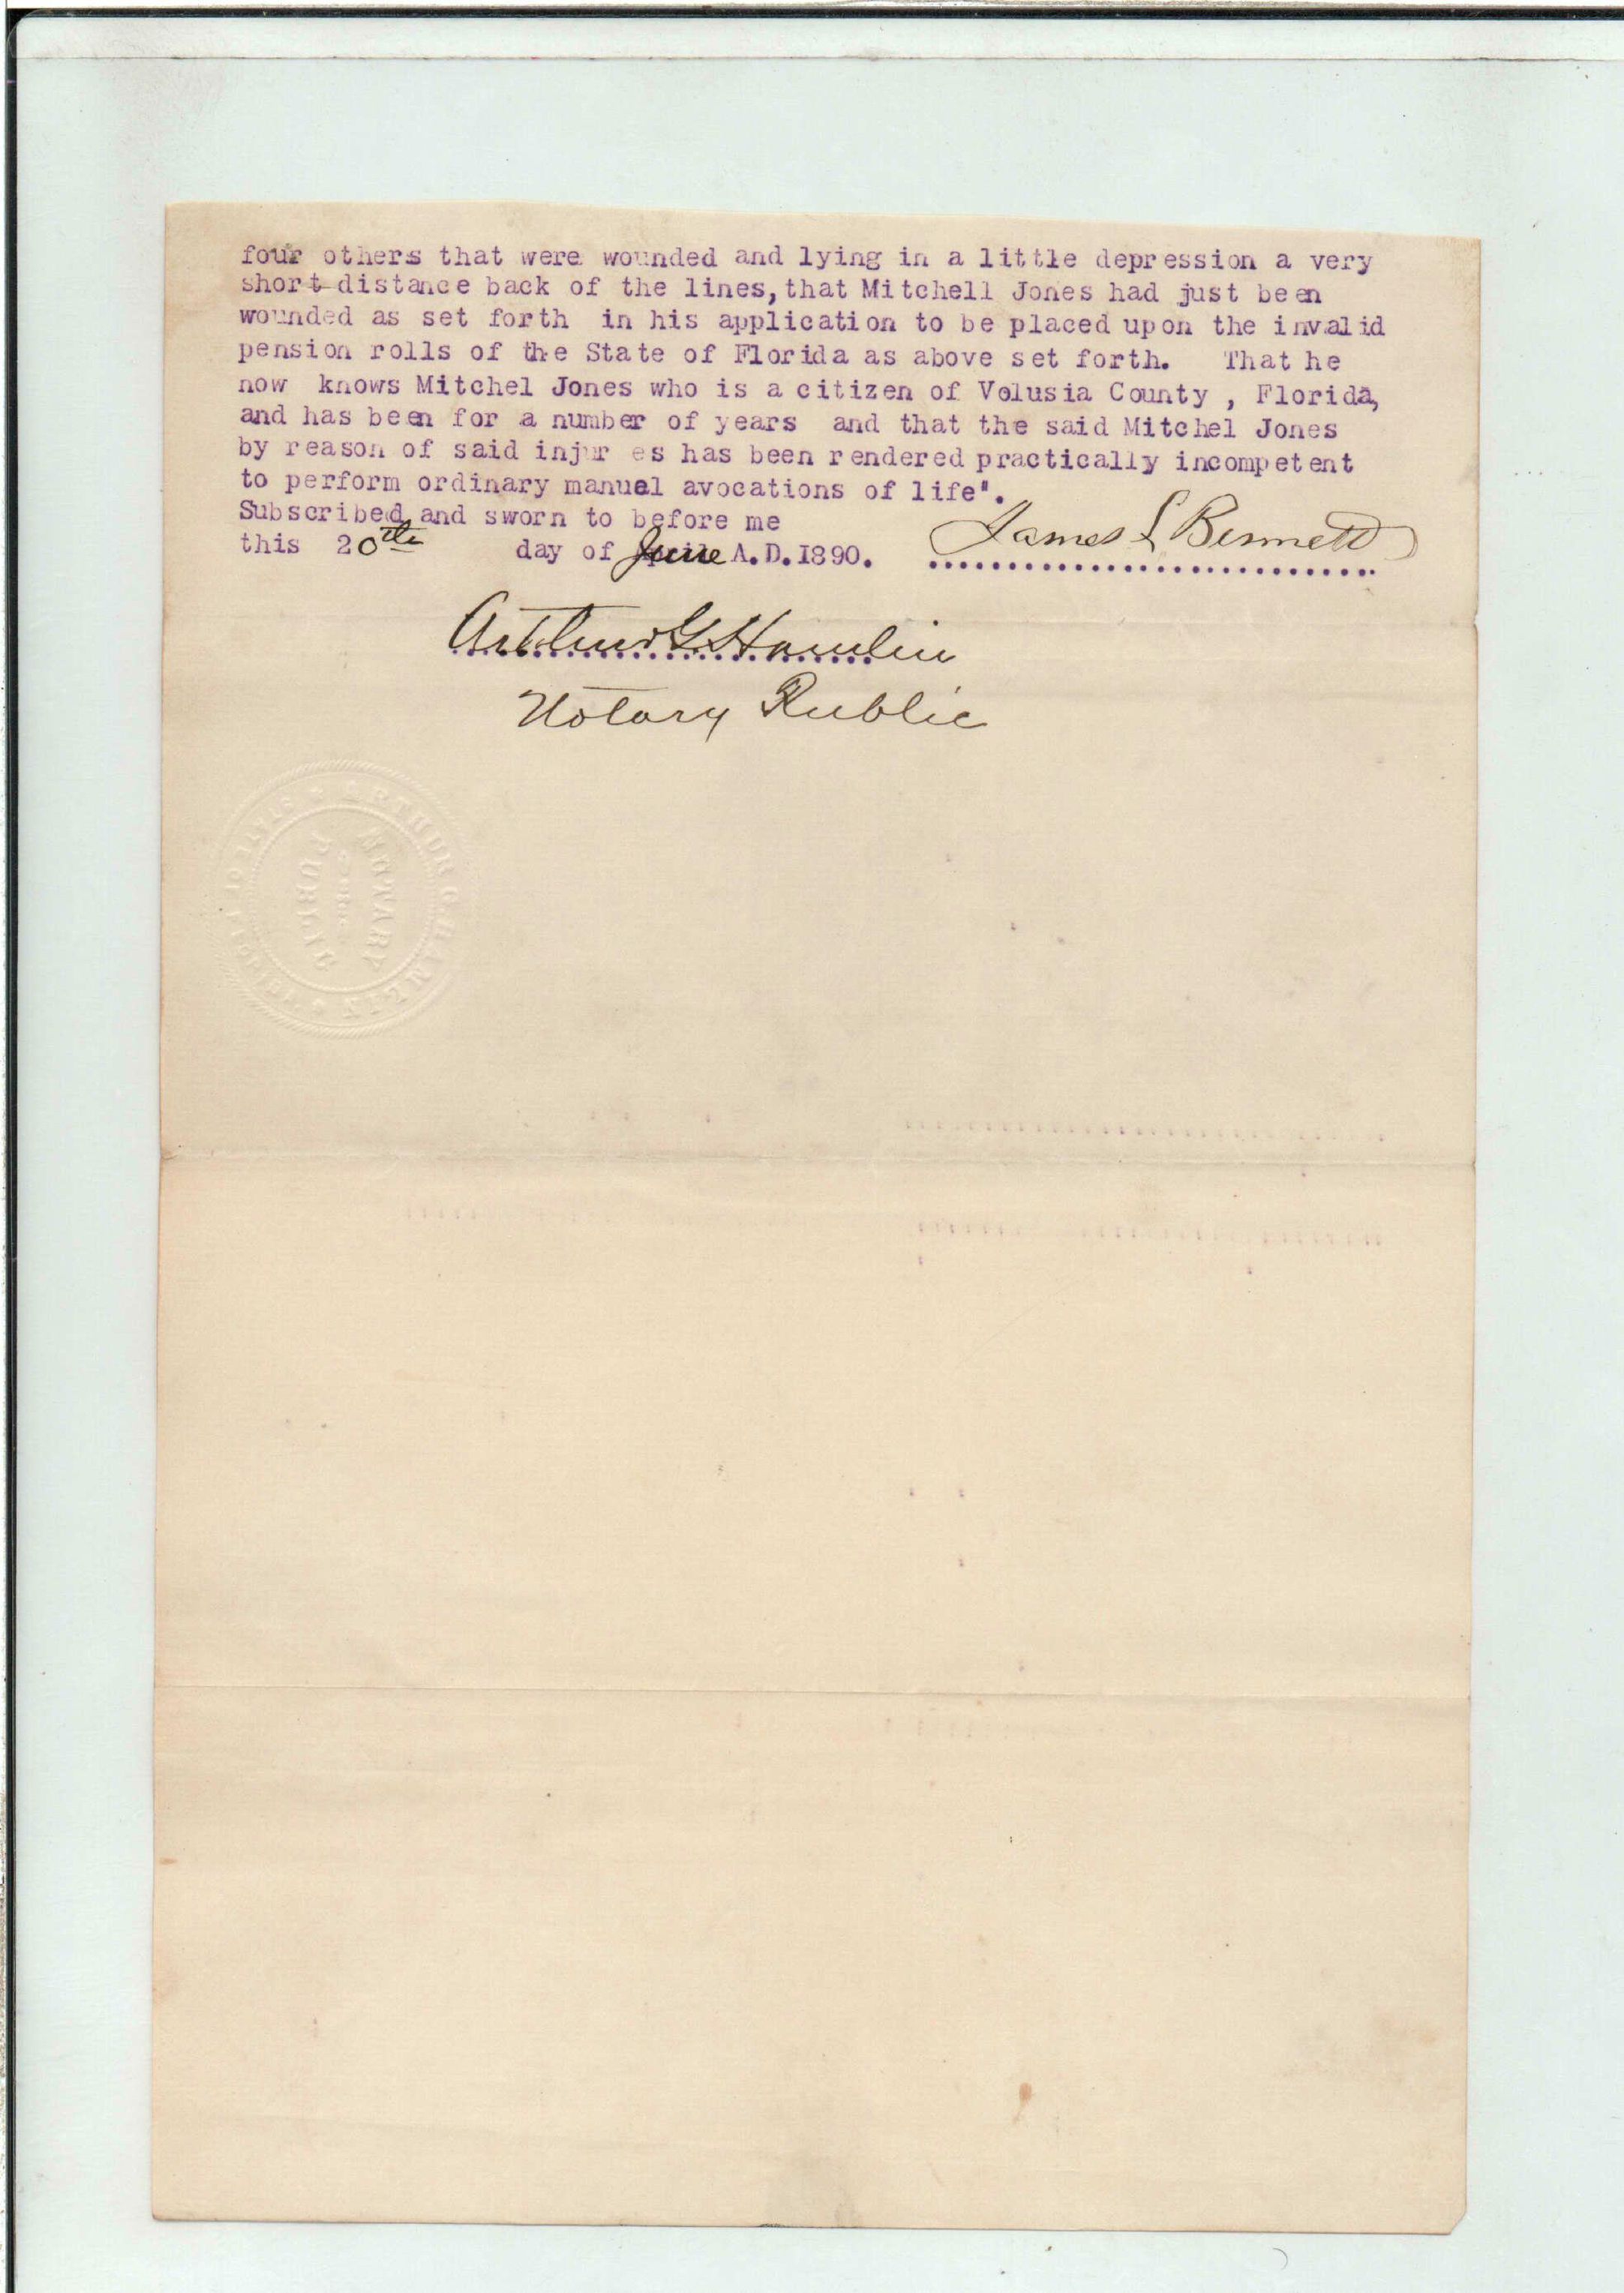 four others that were wounded and lying in a little depression a very
short distance back of the lines, that Mitchell Jones had just been
wounded as set forth in his application to be placed upon the invalid
pension rolls of the State of Florida as above set forth. That he
now knows Mitchel Jones who is a citizen of Volusia County , Florida,
and has been for a number of years and that the said Mitchel Jones
by reason of said injur es has been rendered practically incompetent
to perform ordinary manual avocations of life".
Subscribed and sworn to before me
this 20th day of June A.D.1890. James S Bennett
Arthur G. Hamlin
Notary Public
ARTHUR G. HAMLIN
STATE OF FLORIDA
NOTARY
PUBLIC